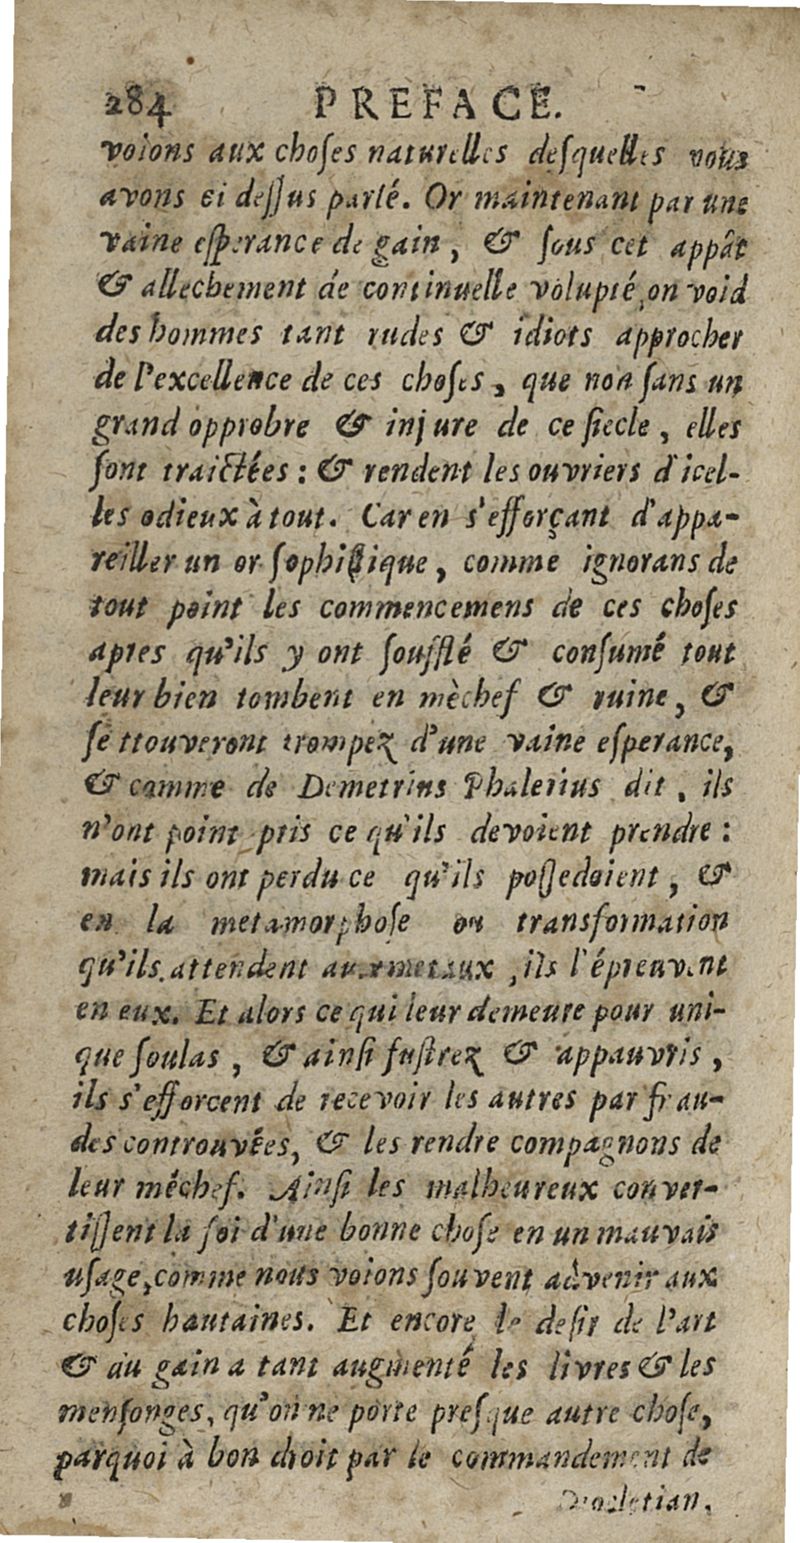 284 PREFACE.
voions aux choſes naturelles deſquelles vous
avons ci deſſus parlé. Or maintenant par une
vaine eſperance de gain, & ſous cet appât
& allechement de continuelle volupté, on void
des hommes tant rudes & idiots approcher
de l'excellence de ces choſes, que non ſans un
grand opprobre & injure de ce ſiecle, elles
ſont traictées : & rendent les ouvriers d'icel-
les odieux à tout. Car en s'efforçant d'appa-
reiller un or ſophiſtique, comme ignorans de
tout point les commencemens de ces choſes
apres qu'ils y ont ſoufflé & conſumé tout
leur bien tombent en mèchef & ruine, &
ſe ttouveront trompez d'une vaine eſperance,
& comme de Demetrius Phalerius dit, ils
n'ont point pris ce qu'ils devoient prendre :
mais ils ont perdu ce qu'ils poſſedoient, &
en la metamorphoſe ou transformation
qu'ils attendent aux metaux, ils l'épreuvent
en eux. Et alors ce qui leur demeure pour uni-
que ſoulas, & ainſi fuſtrez & appauvris,
ils s'efforcent de recevoir les autres par frau-
des controuvées, & les rendre compagnons de
leur méchef. Ainſi les malheureux conver-
tiſſent la foi d'une bonne choſe en un mauvais
uſage, comme nous voions ſouvent advenir aux
choſes hautaines. Et encore le deſir de l'art
& du gain a tant augmenté les livres & les
menſonges, qu'on ne porte preſque autre choſe,
parquoi à bon droit par le commandement de
Diocletian,